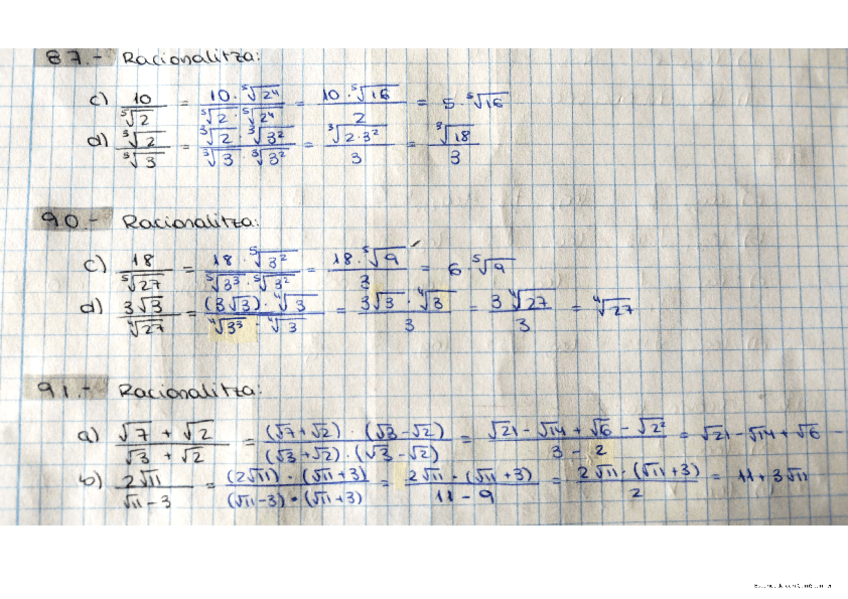 87.- Racionalitza:
c) 10/⁵√2 = 10·⁵√2⁴/⁵√2·⁵√2⁴ = 10·⁵√16/2 = 5·⁵√16
d) ³√2/³√3 = ³√2·³√3²/³√3·³√3² = ³√2·3²/3 = ³√18/3
90.- Racionalitza:
c) 18/⁵√27 = 18·⁵√3²/⁵√3³·⁵√3² = 18·⁵√9/3 = 6·⁵√9
d) 3√3/⁴√27 = (3√3)·⁴√3/⁴√3³·⁴√3 = 3√3·⁴√3/3 = 3⁴√27/3 = ⁴√27
91.- Racionalitza:
a) √7+√2/√3+√2 = (√7+√2)·(√3-√2)/(√3+√2)·(√3-√2) = √21-√14+√6-√2²/3-2 = √21-√14+√6-
b) 2√11/√11-3 = (2√11)·(√11+3)/(√11-3)·(√11+3) = 2√11·(√11+3)/11-9 = 2√11·(√11+3)/2 = 11+3√11